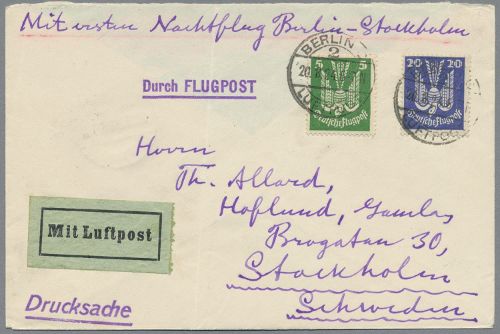 Mit ersten Nachtflug Berlin-Stockholm
Durch FLUGPOST
BERLIN
2
5 5
Deutsche Flugpost
20 20
Deutsche Flugpost
LUFTPOST
Herrn
Th. Allard,
Hoflund, Gamlas
Brogatan 30,
Stockholm
Schweden
Mit Luftpost
Drucksache